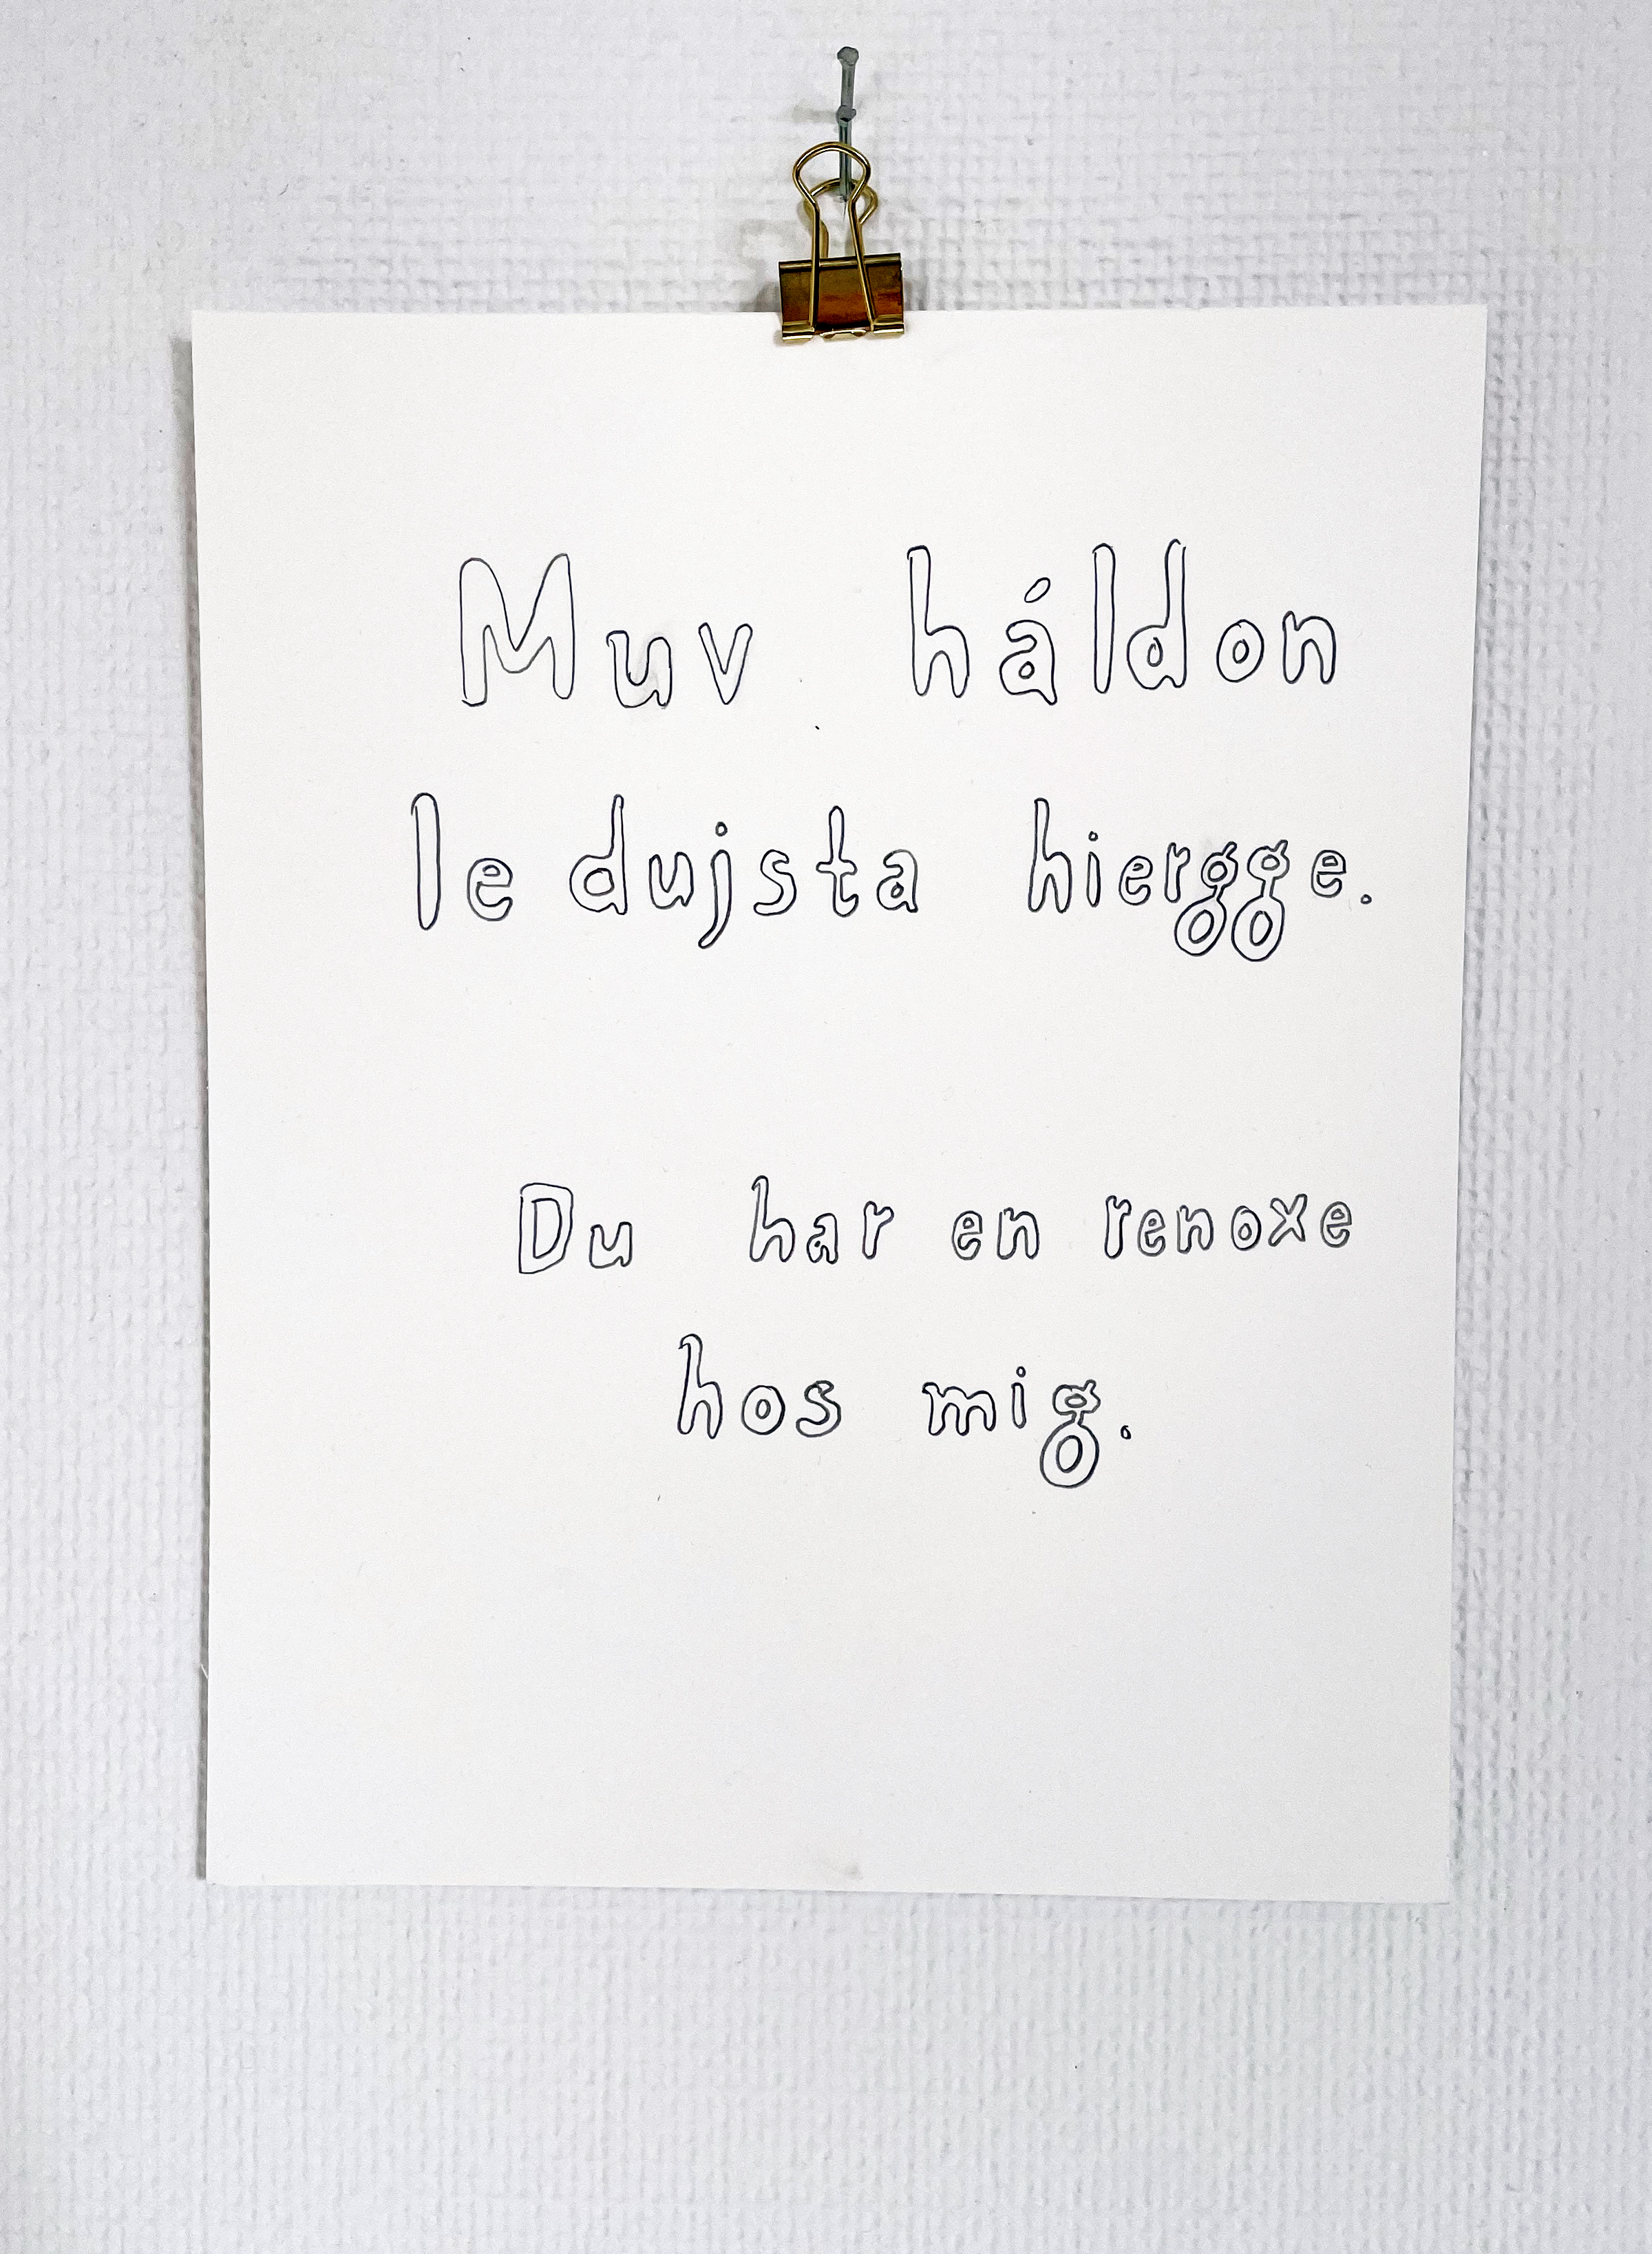 Muv háldon
le dujsta hiergge.
Du har en renoxe
hos mig.